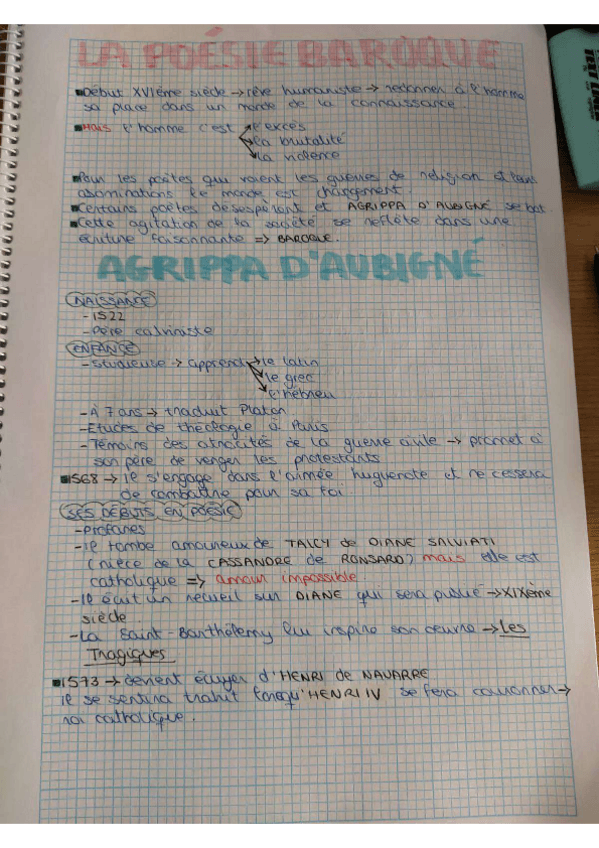 LA POÉSIE BAROQUE
Début XVIème siècle → rêve humaniste → redonner à l'homme
sa place dans un monde de la connaissance.
Mais l'homme c'est → l'excès
→ la brutalité
→ la violence
Pour les poètes qui voient les guerres de religion et leurs
abominations le monde est changement.
Certains poètes désespèront et AGRIPPA D'AUBIGNÉ se bat
Cette agitation de la société se reflète dans une
écriture foisonnante => BAROQUE.
AGRIPPA D'AUBIGNÉ
NAISSANCE
- 1522
- Père calviniste
ENFANCE
- Studieuse → apprend → le latin
→ le grec
→ l'hébreu
- À 7 ans → traduit Platon
- Etudes de théologie à Paris
- Témoins des atrocités de la guerre civile → promet à
son père de venger les protestants
1568 → Il s'engage dans l'armée huguenote et ne cessera
de combattre pour sa foi.
SES DÉBUTS EN POÉSIE
- Profanes
- Il tombe amoureux de TALCY de DIANE SALVIATI
(nièce de la CASSANDRE de RONSARD) mais elle est
catholique => amour impossible
- Il écrit un recueil sur DIANE qui sera publié → XIXème
siècle.
- La Saint-Barthélemy lui inspire son oeuvre → Les
Tragiques
1573 → devient écuyer d'HENRI de NAVARRE
Il se sentira trahit lorsqu'HENRI IV se fera couronner →
roi catholique.